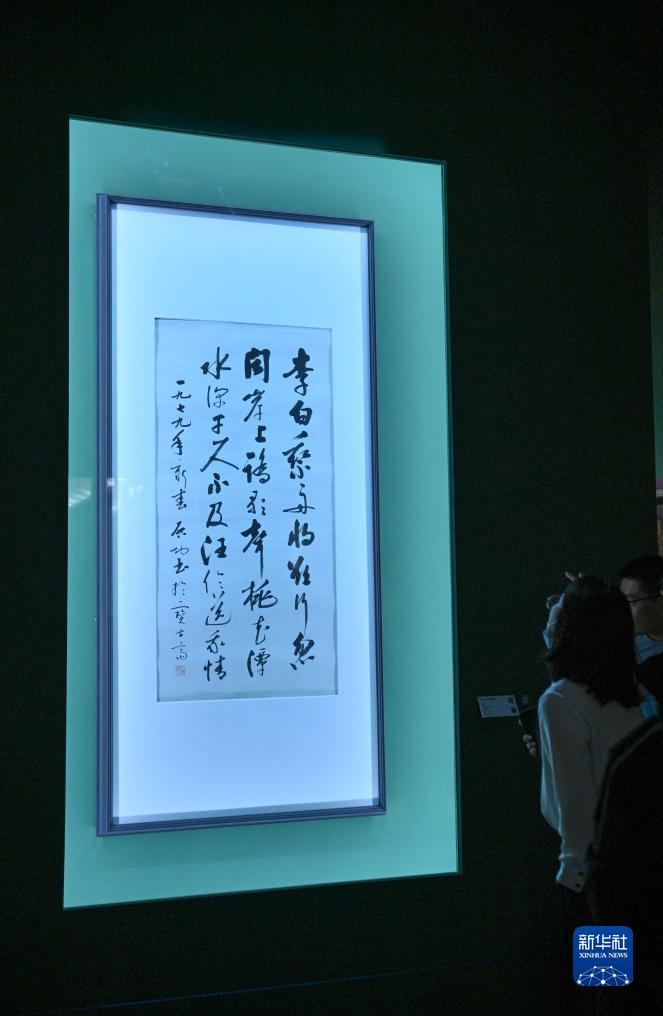 李白乘舟将欲行忽
闻岸上踏歌聲桃花潭
水深千尺不及汪倫送我情
一九七九年新春 启功书於寶古斋
新华社
XINHUA NEWS